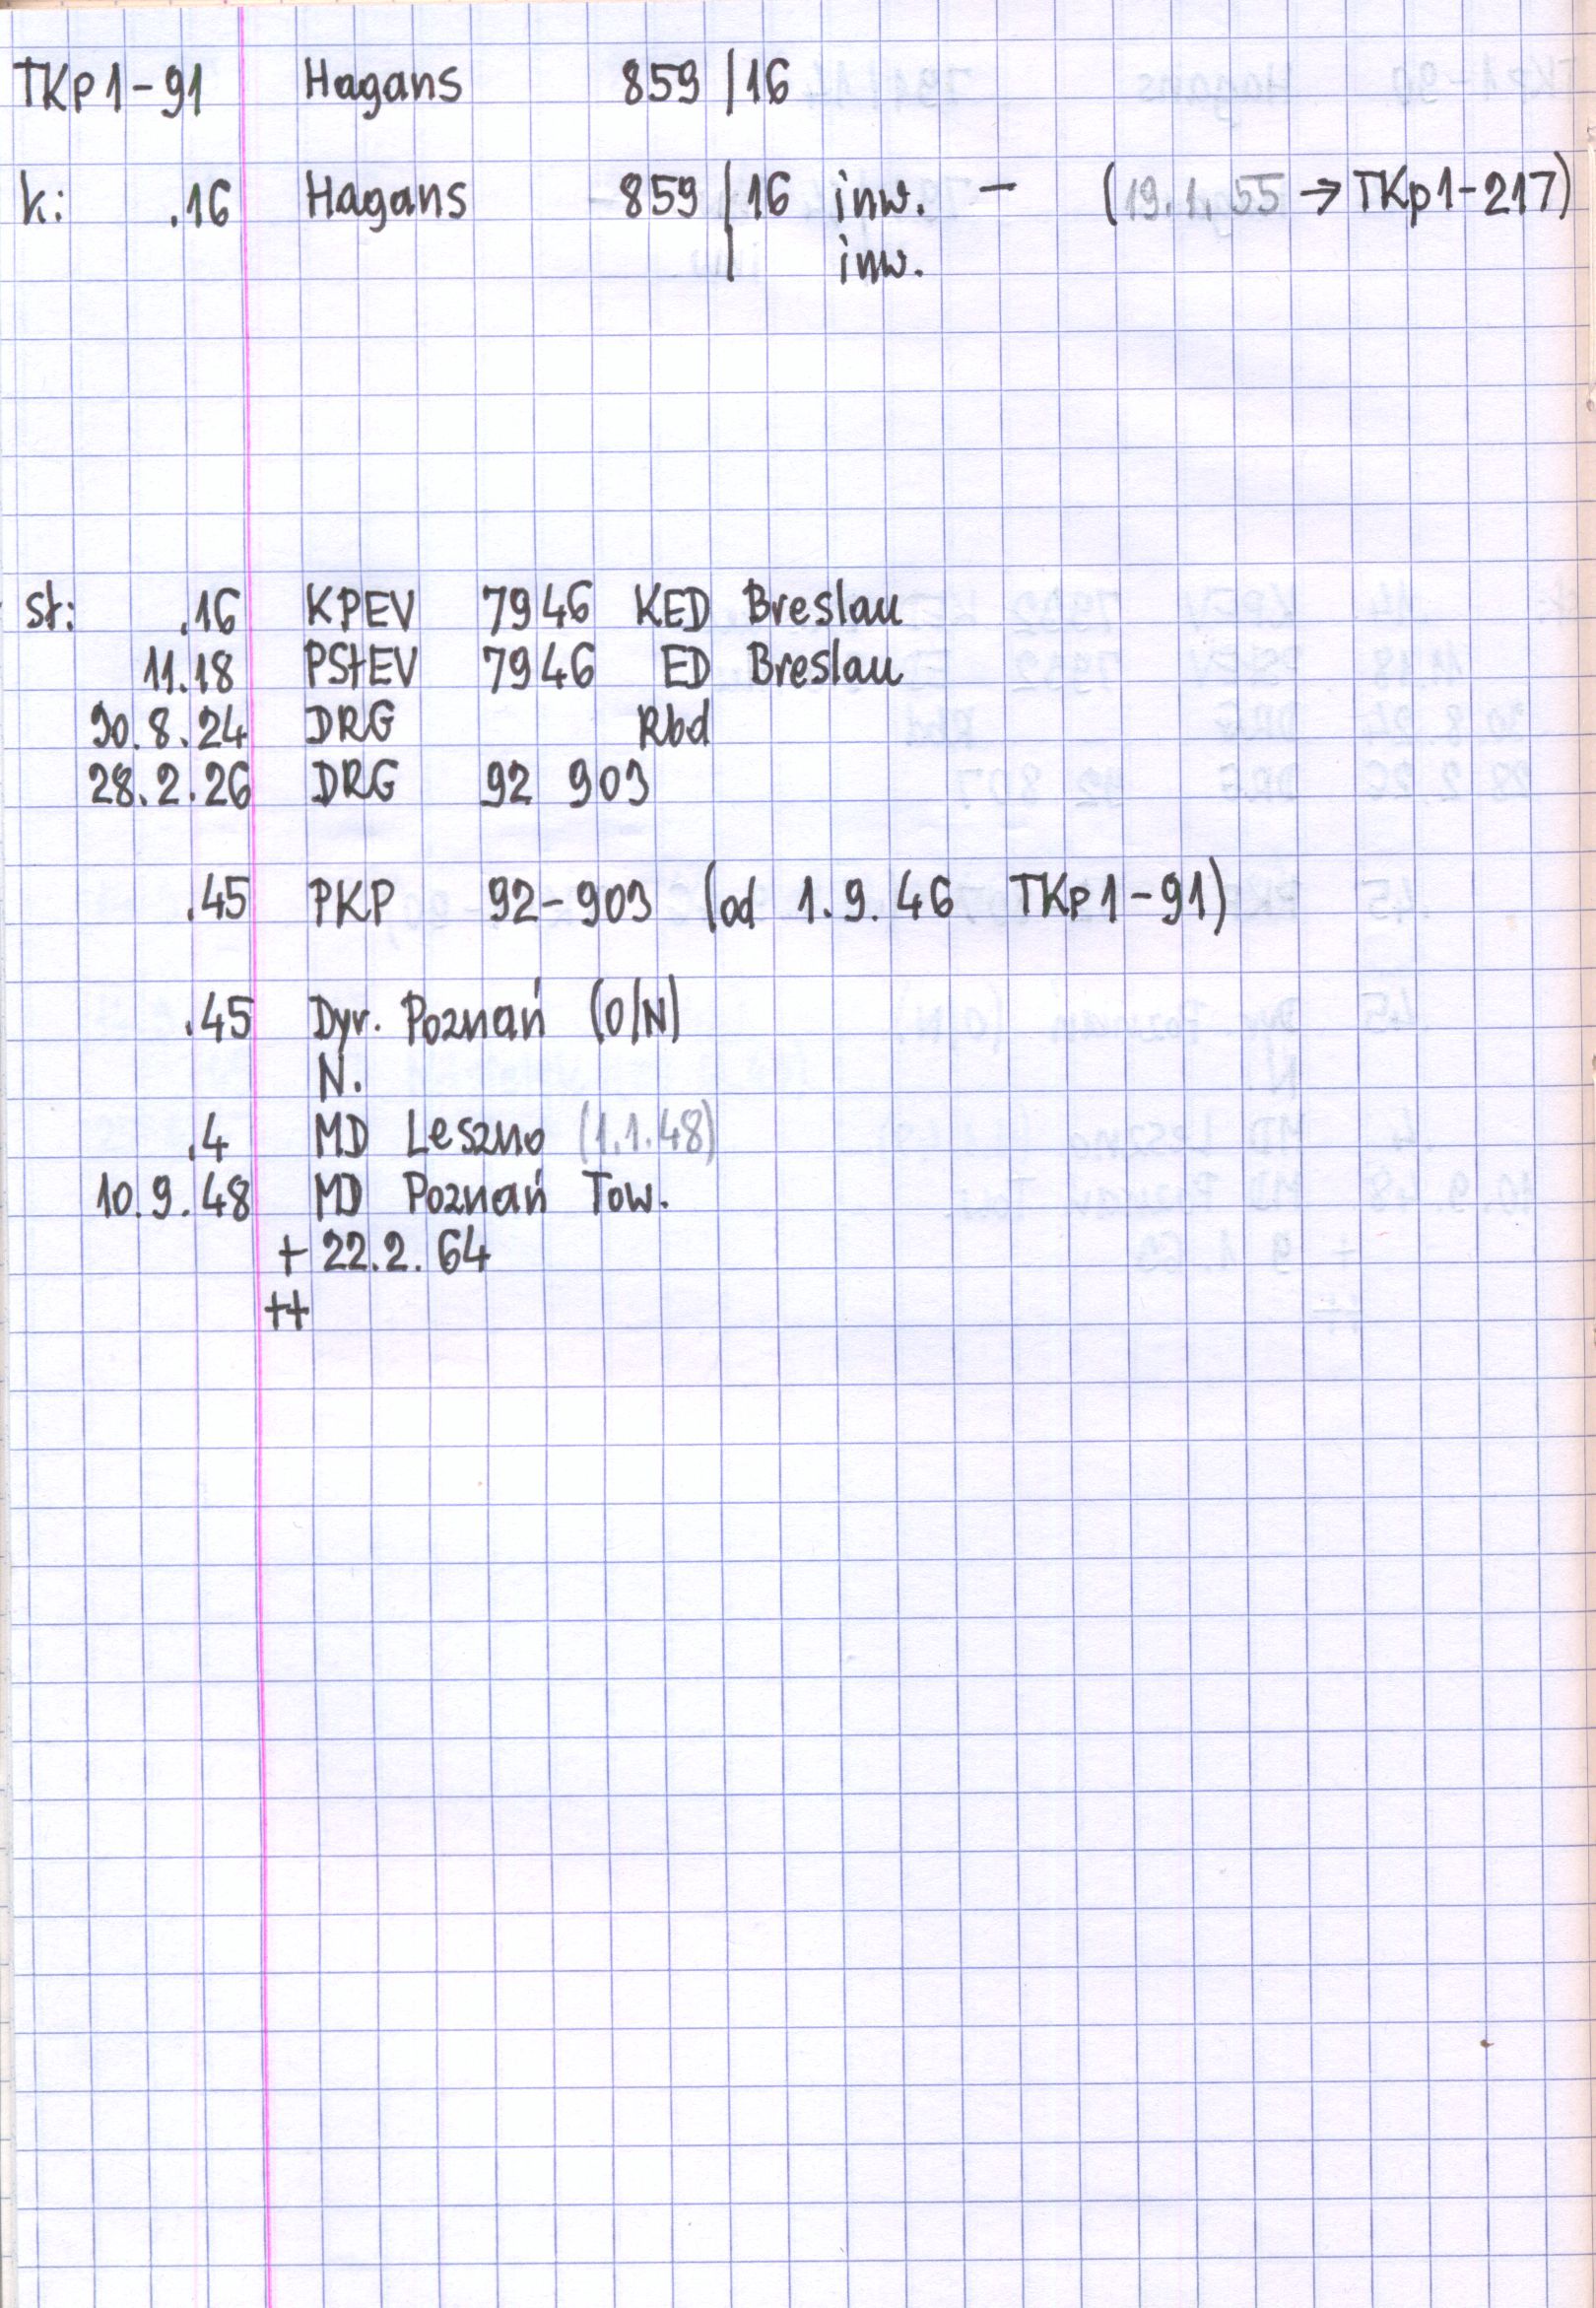 TKp1-91 Hagans 859/16
k: .16 Hagans 859/16 inw. - (19.1.55 → TKp1-217)
/ inw.
st: .16 KPEV 7946 KED Breslau
11.18 PStEV 7946 ED Breslau
30.8.24 DRG Rbd
28.2.26 DRG 92 903
.45 PKP 92-903 (od 1.9.46 TKp1-91)
.45 Dyr. Poznań (O/N)
N.
.4 MD Leszno (1.1.48)
10.9.48 MD Poznań Tow.
+ 22.2.64
++